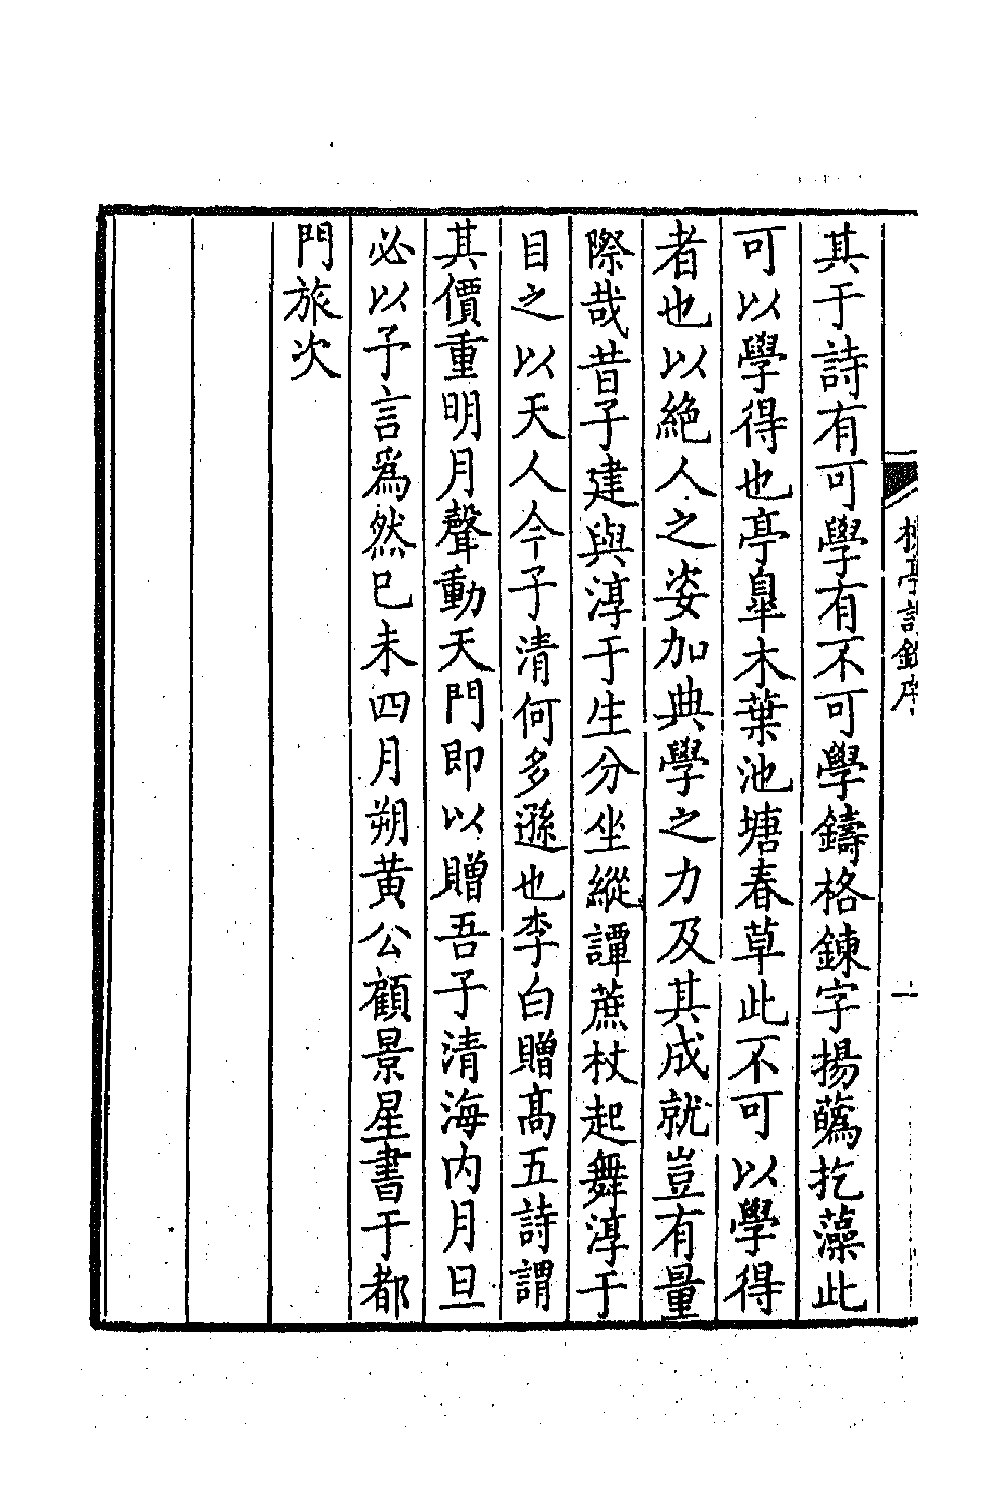 其于詩有可學有不可學鑄格鍊字揚蘤扢藻此
可以學得也亭臯木葉池塘春草此不可以學得
者也以絶人之姿加典學之力及其成就豈有量
際哉昔子建與淳于生分坐縱譚蔗杖起舞淳于
目之以天人今子清何多遜也李白贈高五詩謂
其價重明月聲動天門即以贈吾子清海内月旦
必以予言爲然巳未四月朔黄公顧景星書于都
門旅次
亭詩鈔序
一